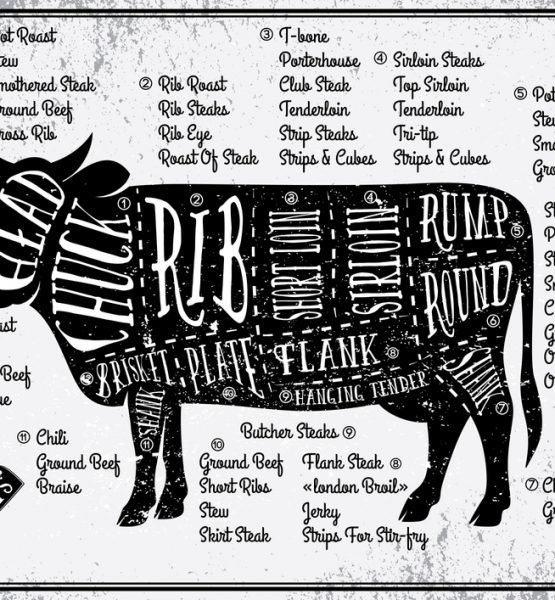 ot Roast
tew
mothered Steak
round Beef
ross Rib
② Rib Roast
Rib Steaks
Rib Eye
Roast Of Steak
③ T-bone
Porterhouse
Club Steak
Tenderloin
Strip Steaks
Strips & Cubes
④ Sirloin Steaks
Top Sirloin
Tenderloin
Tri-tip
Strips & Cubes
⑤ Pot
Stew
Smo
Gro
HEAD
CHUCK ①
RIB ②
SHORT LOIN ③
SIRLOIN ④
RUMP ⑤
ROUND ⑥
BRISKET
PLATE ⑩
FLANK ⑧
⑨ HANGING TENDER
SHANK ⑦
SHANK ⑪
ast
Beef
⑪ Chili
Ground Beef
Braise
Butcher Steaks ⑨
⑩
Ground Beef
Short Ribs
Stew
Skirt Steak
Flank Steak ⑧
«london Broil»
Jerky
Strips For Stir-fry
⑦ Ch